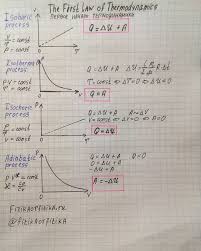 The First Law of Thermodynamics
ПЕРВОЕ НАЧАЛО ТЕРМОДИНАМИКИ
Isobaric process
V/T = const
P = const
Q = ΔU + A
Isothermal process
PV = const
T = const
Q = ΔU + A
T = const ⇔ ΔT = 0 ⇔ ΔU = 0
Q = A
Isochoric process
P/T = const
V = const
Q = ΔU + A
A ~ ΔV
V = const ⇔ ΔV = 0 ⇔ A = 0
Q = ΔU
Adiabatic process
Q = ΔU + A
Q = 0
0 = ΔU + A
-ΔU = A
A = -ΔU
fizikaotfizika.ru
@fizikaotfizika